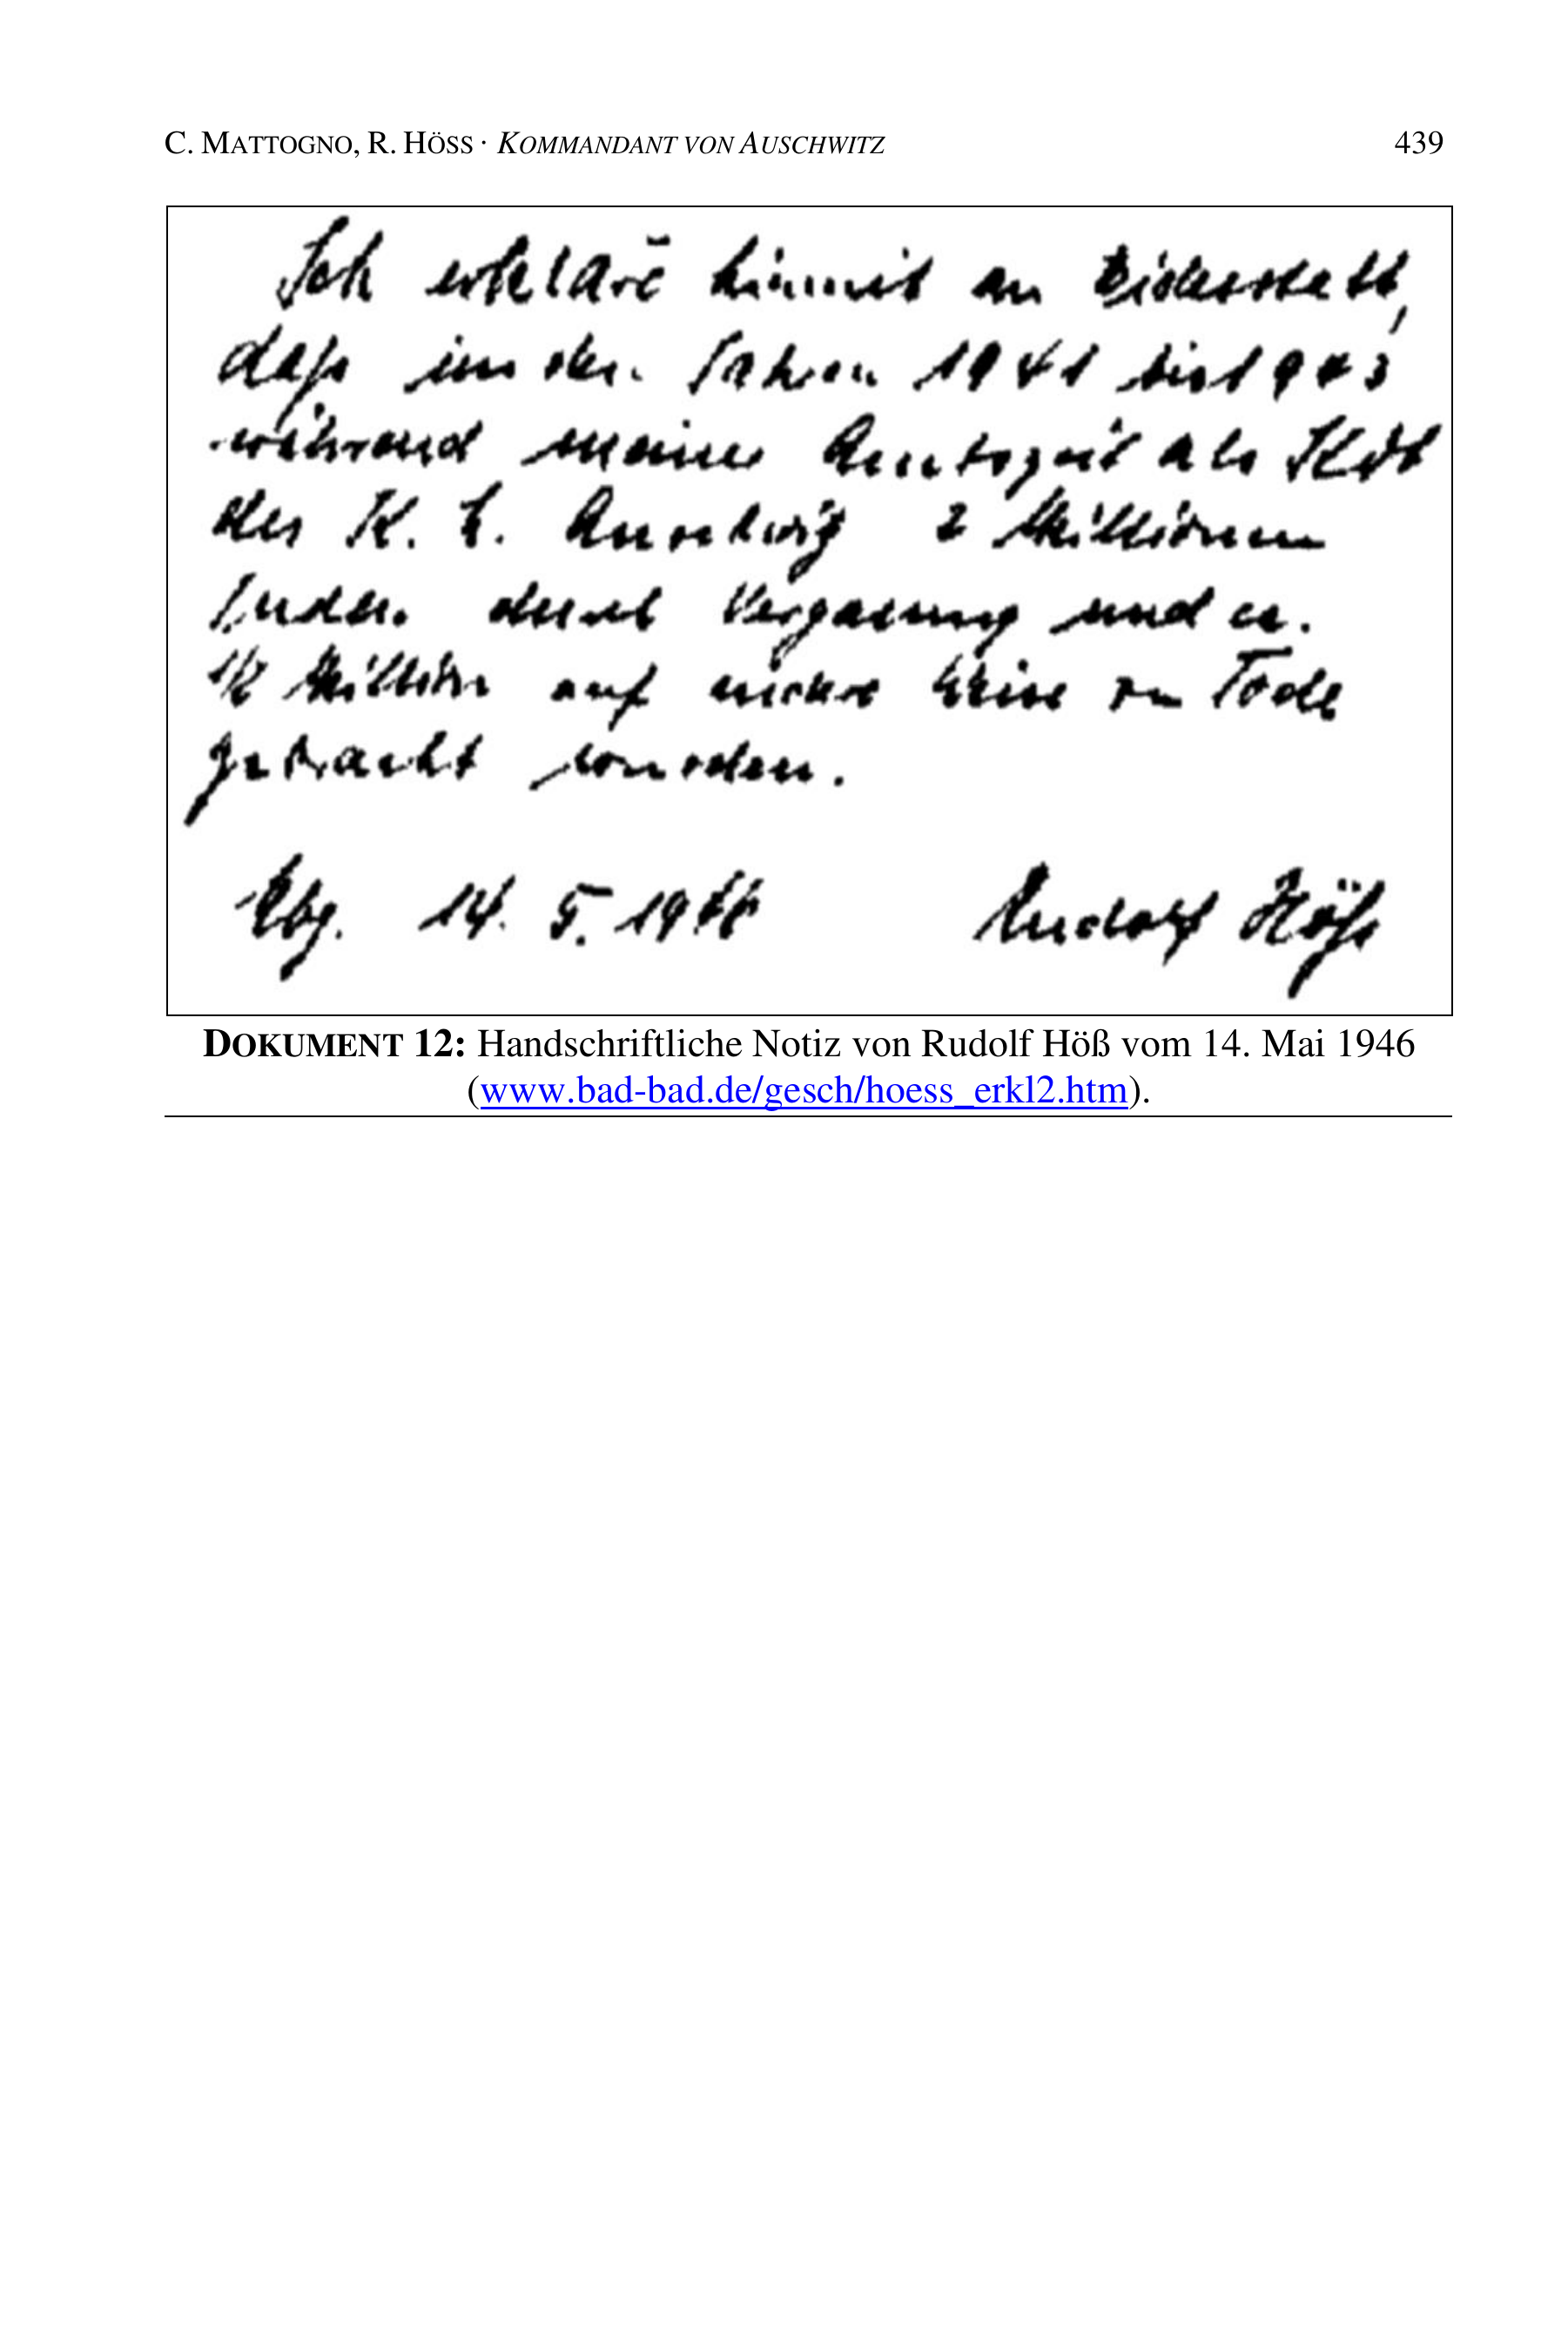 C. MATTOGNO, R. HÖSS · KOMMANDANT VON AUSCHWITZ 439
Ich erkläre hiermit an Eidesstatt,
daß in den Jahren 1941 bis 1943
während meiner Amtszeit als Kdt
des K. L. Auschwitz 2 Millionen
Juden durch Vergasung und ca.
1/2 Million auf andere Weise zu Tode
gebracht wurden.
Nbg. 14. 5. 1946 Rudolf Höß
DOKUMENT 12: Handschriftliche Notiz von Rudolf Höß vom 14. Mai 1946
(www.bad-bad.de/gesch/hoess_erkl2.htm).